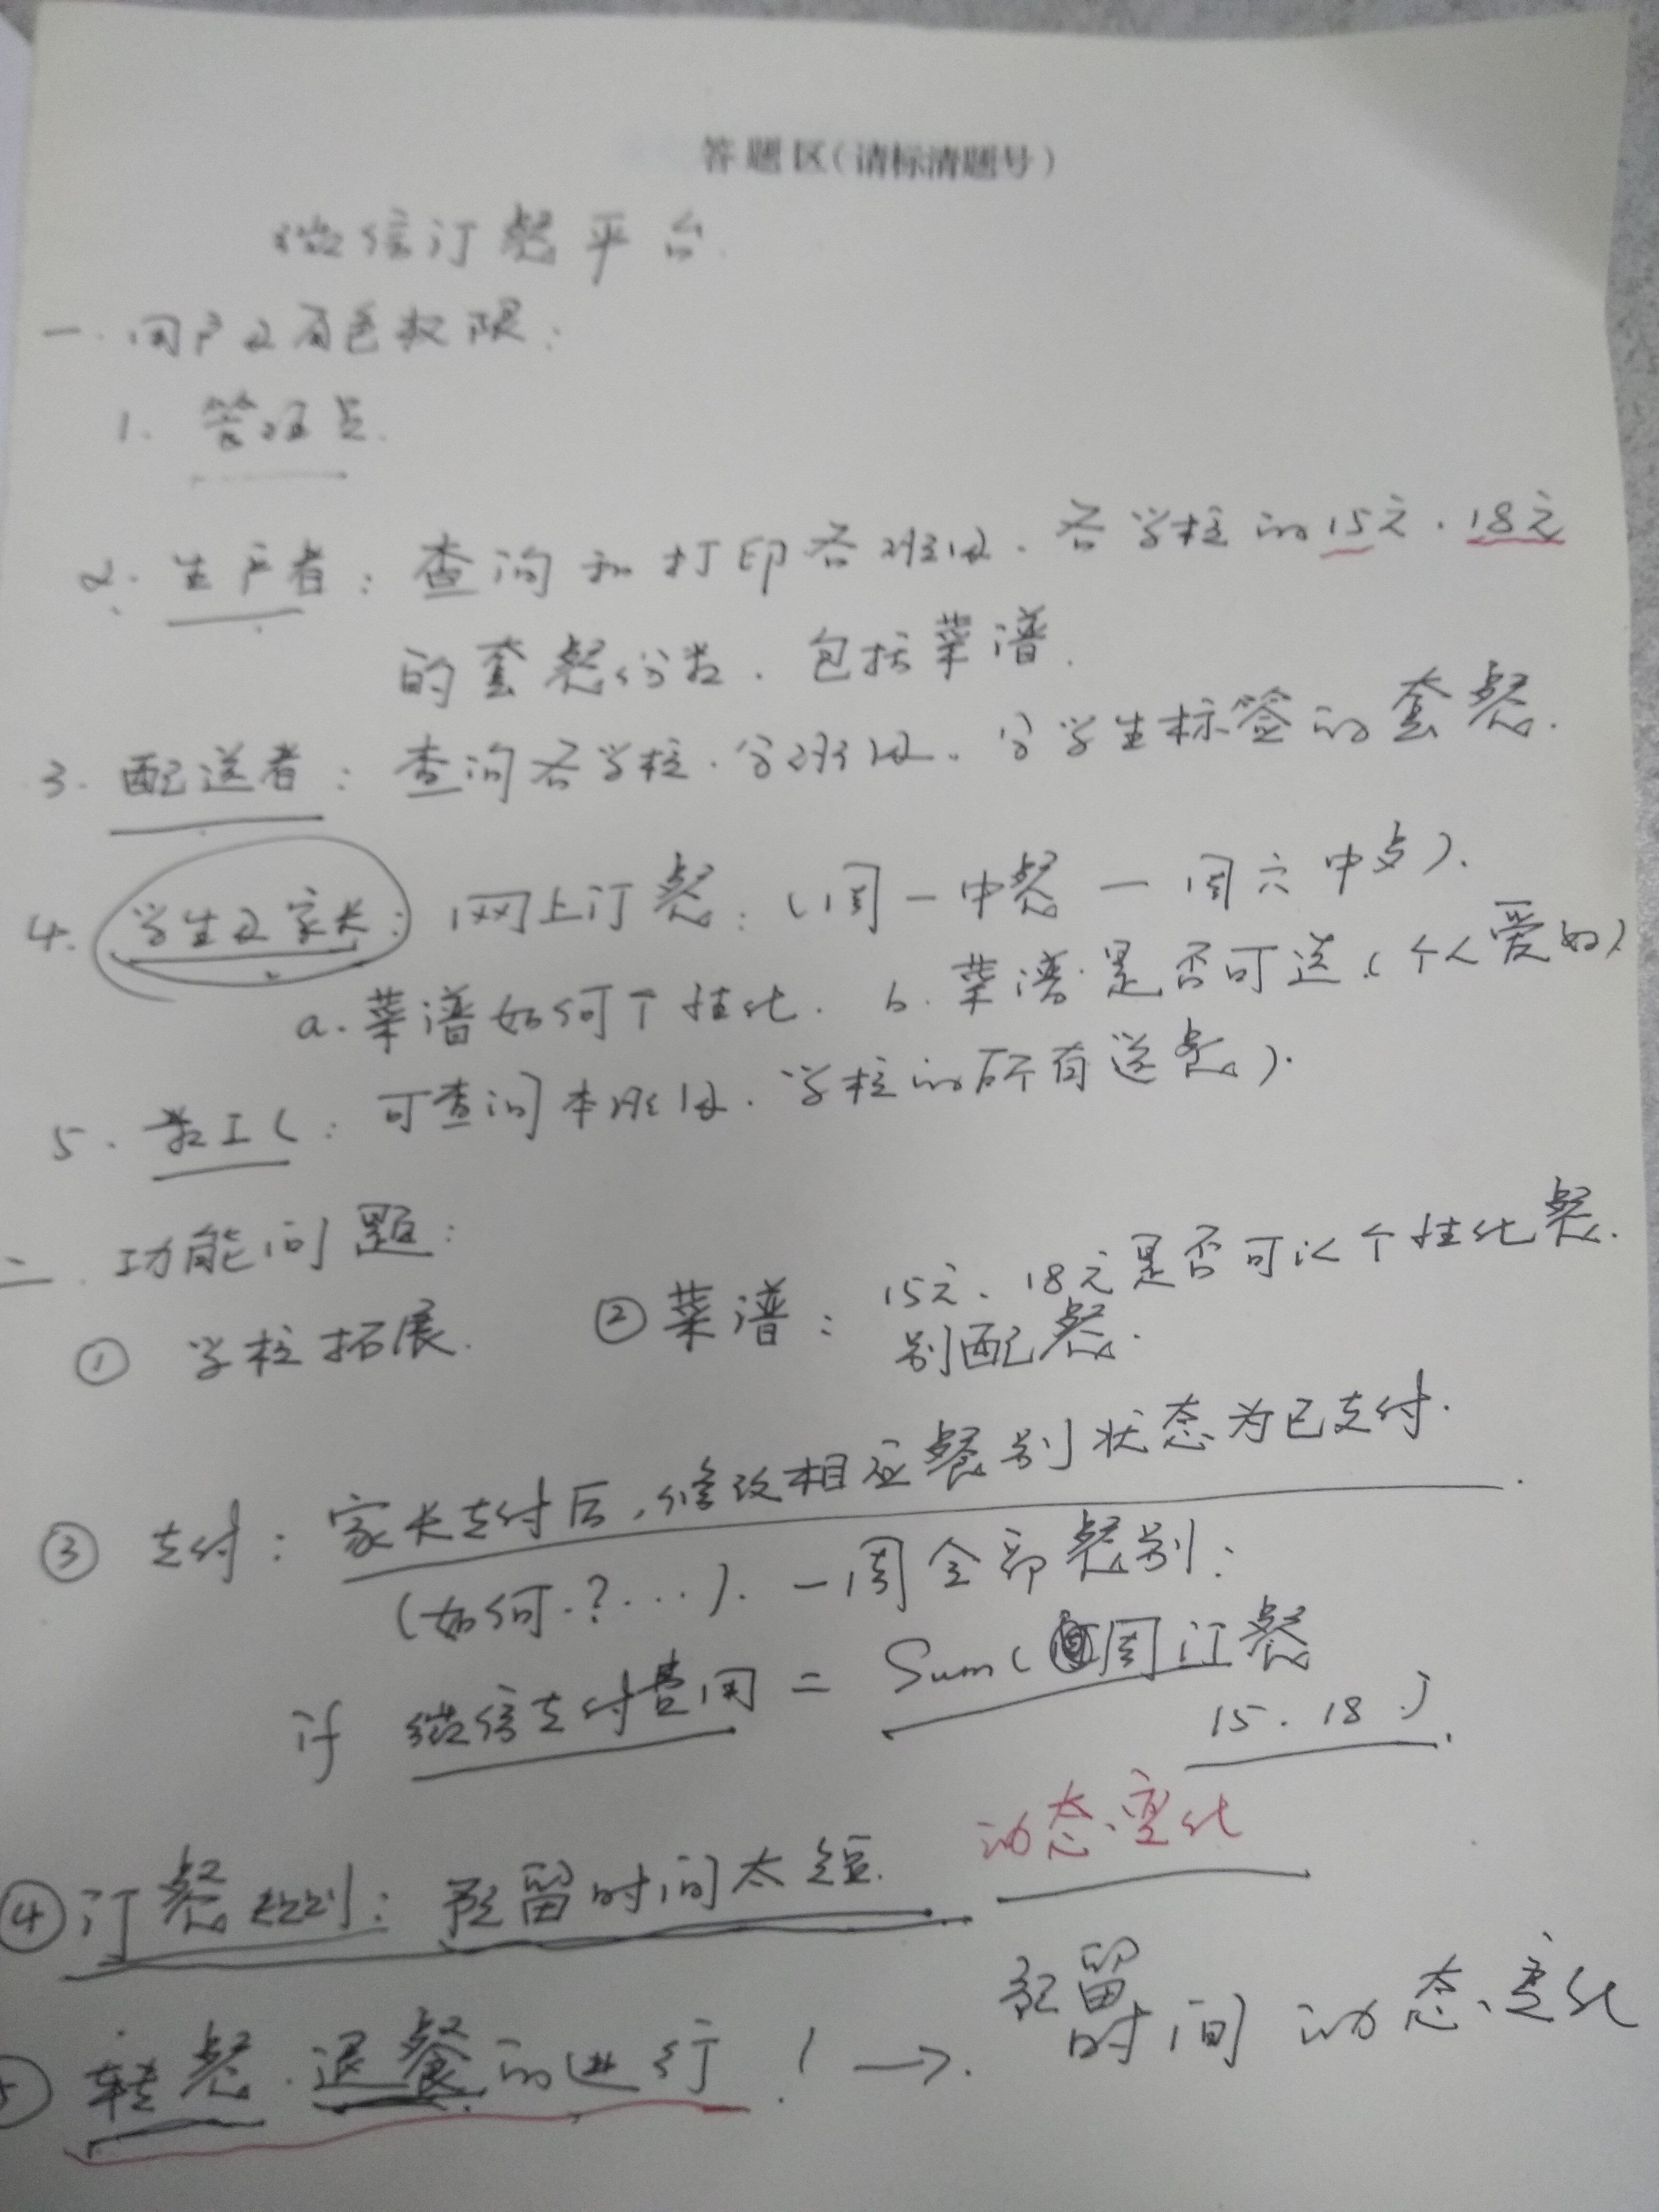 答题区(请标清题号)
微信订餐平台
一. 用户及角色权限:
1. 管理员.
2. 生产者: 查询和打印各班级、各学校的15元、18元
的套餐份数、包括菜谱.
3. 配送者: 查询各学校、分班级、分学生标签的套餐.
4. 学生及家长: 网上订餐: (周一中餐一周六中点).
a. 菜谱如何个性化. b. 菜谱是否可送(个人爱好)
5. 教工(: 可查询本班级、学校的所有送餐).
二. 功能问题:
① 学校拓展. ② 菜谱: 15元、18元是否可以个性化餐.
别配餐.
③ 支付: 家长支付后,修改相应餐别状态为已支付.
(如何.?...). 一周全部餐别:
if 微信支付费用 = Sum(周订餐
15. 18.)
动态变化
④订餐规则: 预留时间太短.
预留
转餐.退餐的进行! → 时间 动态变化